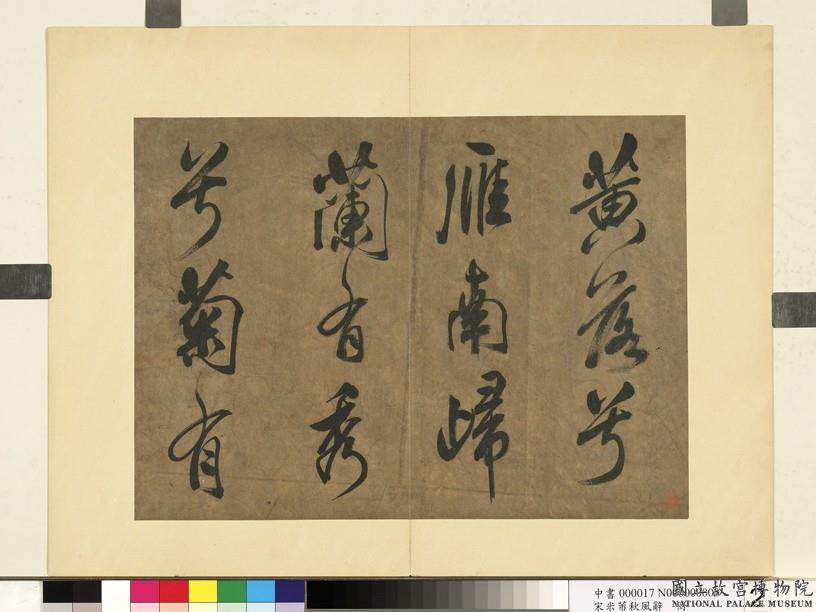 黄落兮
雁南歸
蘭有秀
兮菊有
國立故宮博物院
NATIONAL PALACE MUSEUM
中書 000017
宋米芾秋風辭